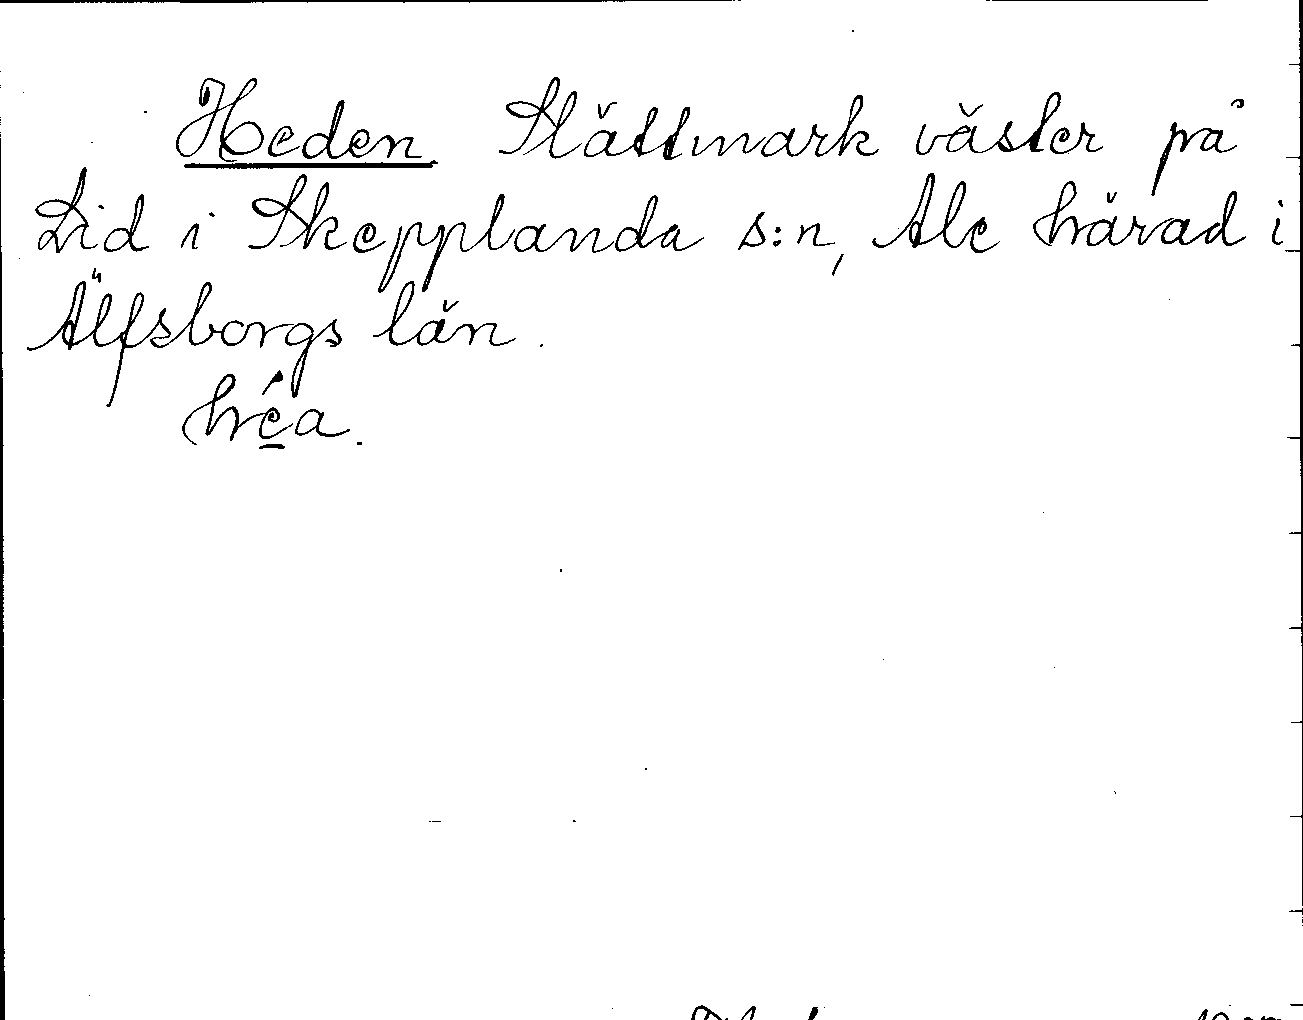 Heden. Slättmark väster på
Lid i Skepplanda s:n, Ale härad i
Älfsborgs län.
hréa.